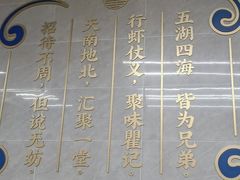 五湖四海，皆为兄弟。
行虾仗义，聚味瞿记。
天南地北，汇聚一堂。
招待不周，但说无妨。